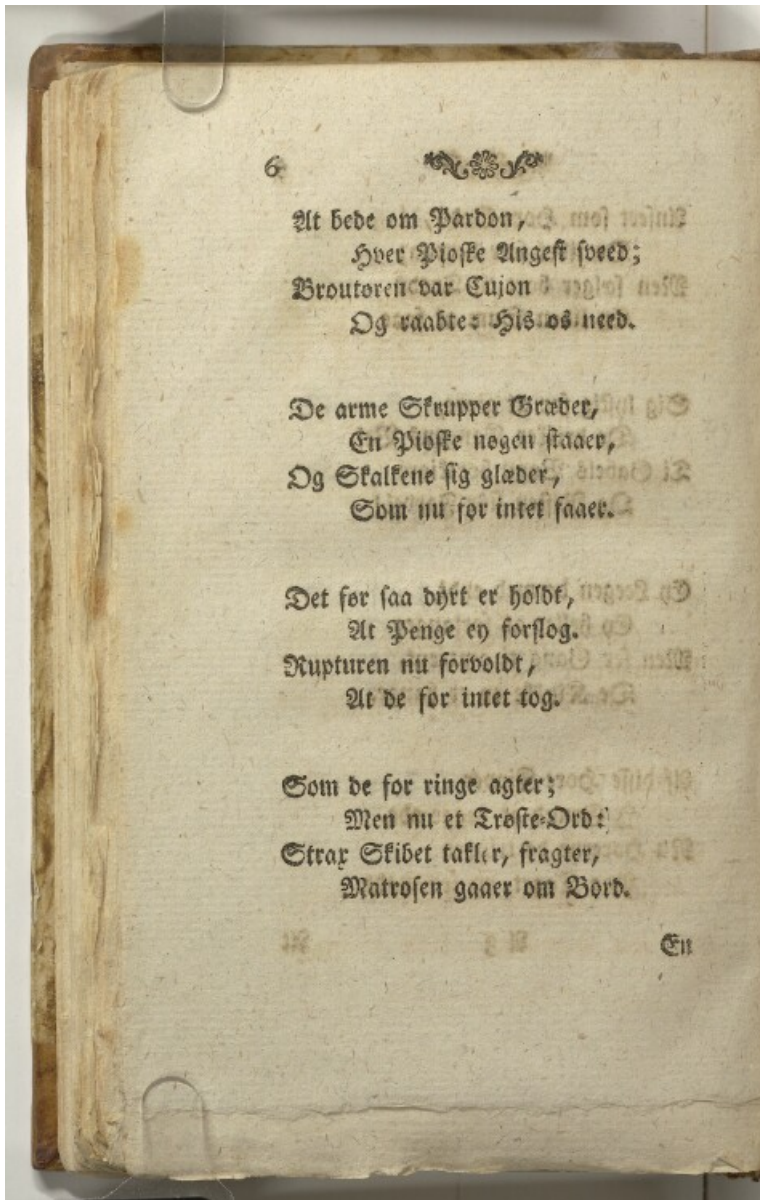 6
At bede om Pardon,
Hver Pioske Angest sveed;
Broutoren var Cujon
Og raabte: His os need.
De arme Skrupper Græder,
En Pioske nøgen staaer,
Og Skalkene sig glæder,
Som nu for intet faaer.
Det før saa dyrt er holdt,
At Penge ey forslog.
Rupturen nu forvoldt,
At de for intet tog.
Som de for ringe agter;
Men nu et Trøste-Ord:
Strax Skibet takler, fragter,
Matrosen gaaer om Bord.
En